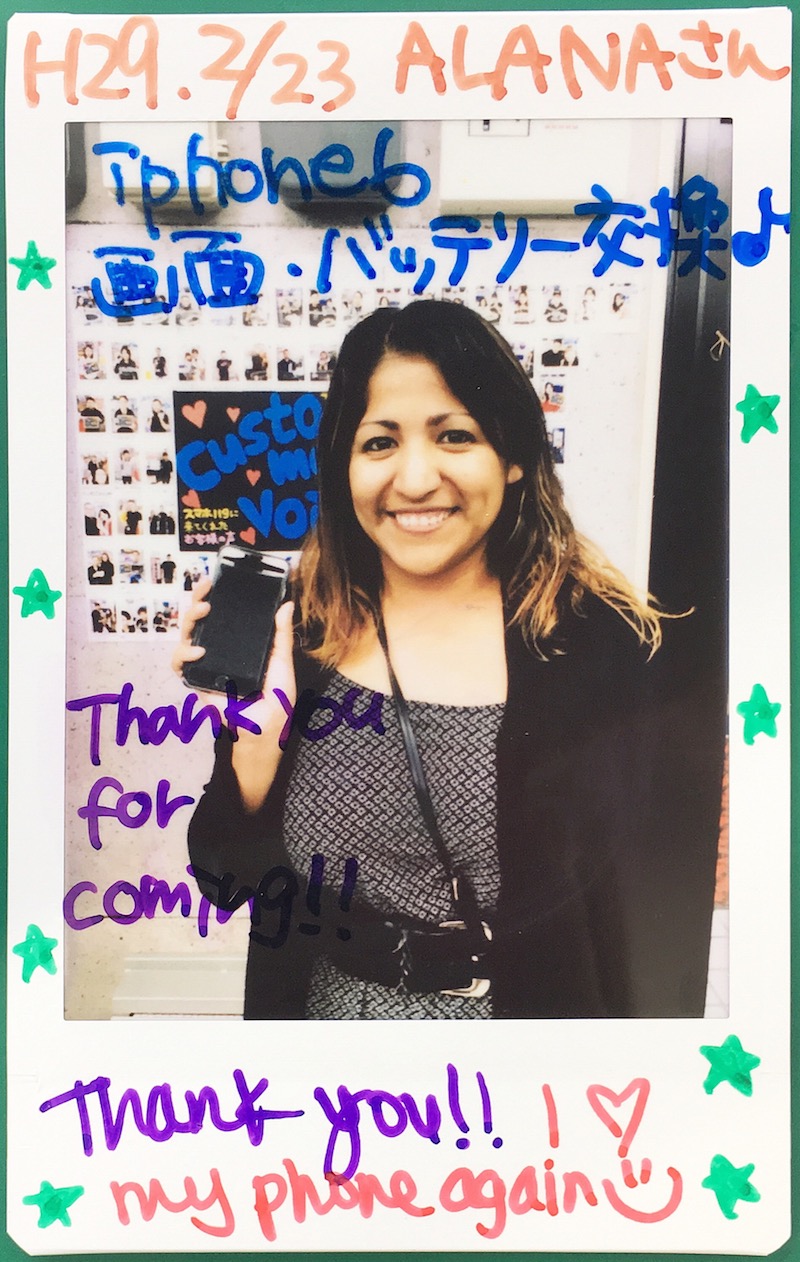 H29.2/23 ALANAさん
iphone6
画面・バッテリー交換♪
Custo
me
Voi
スマホハグに
来てくれた
お客様の声
Thank you
for
coming!!
Thank you!! I ♡
my phone again